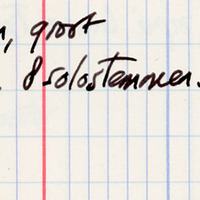 , groot
8 solostemmen.